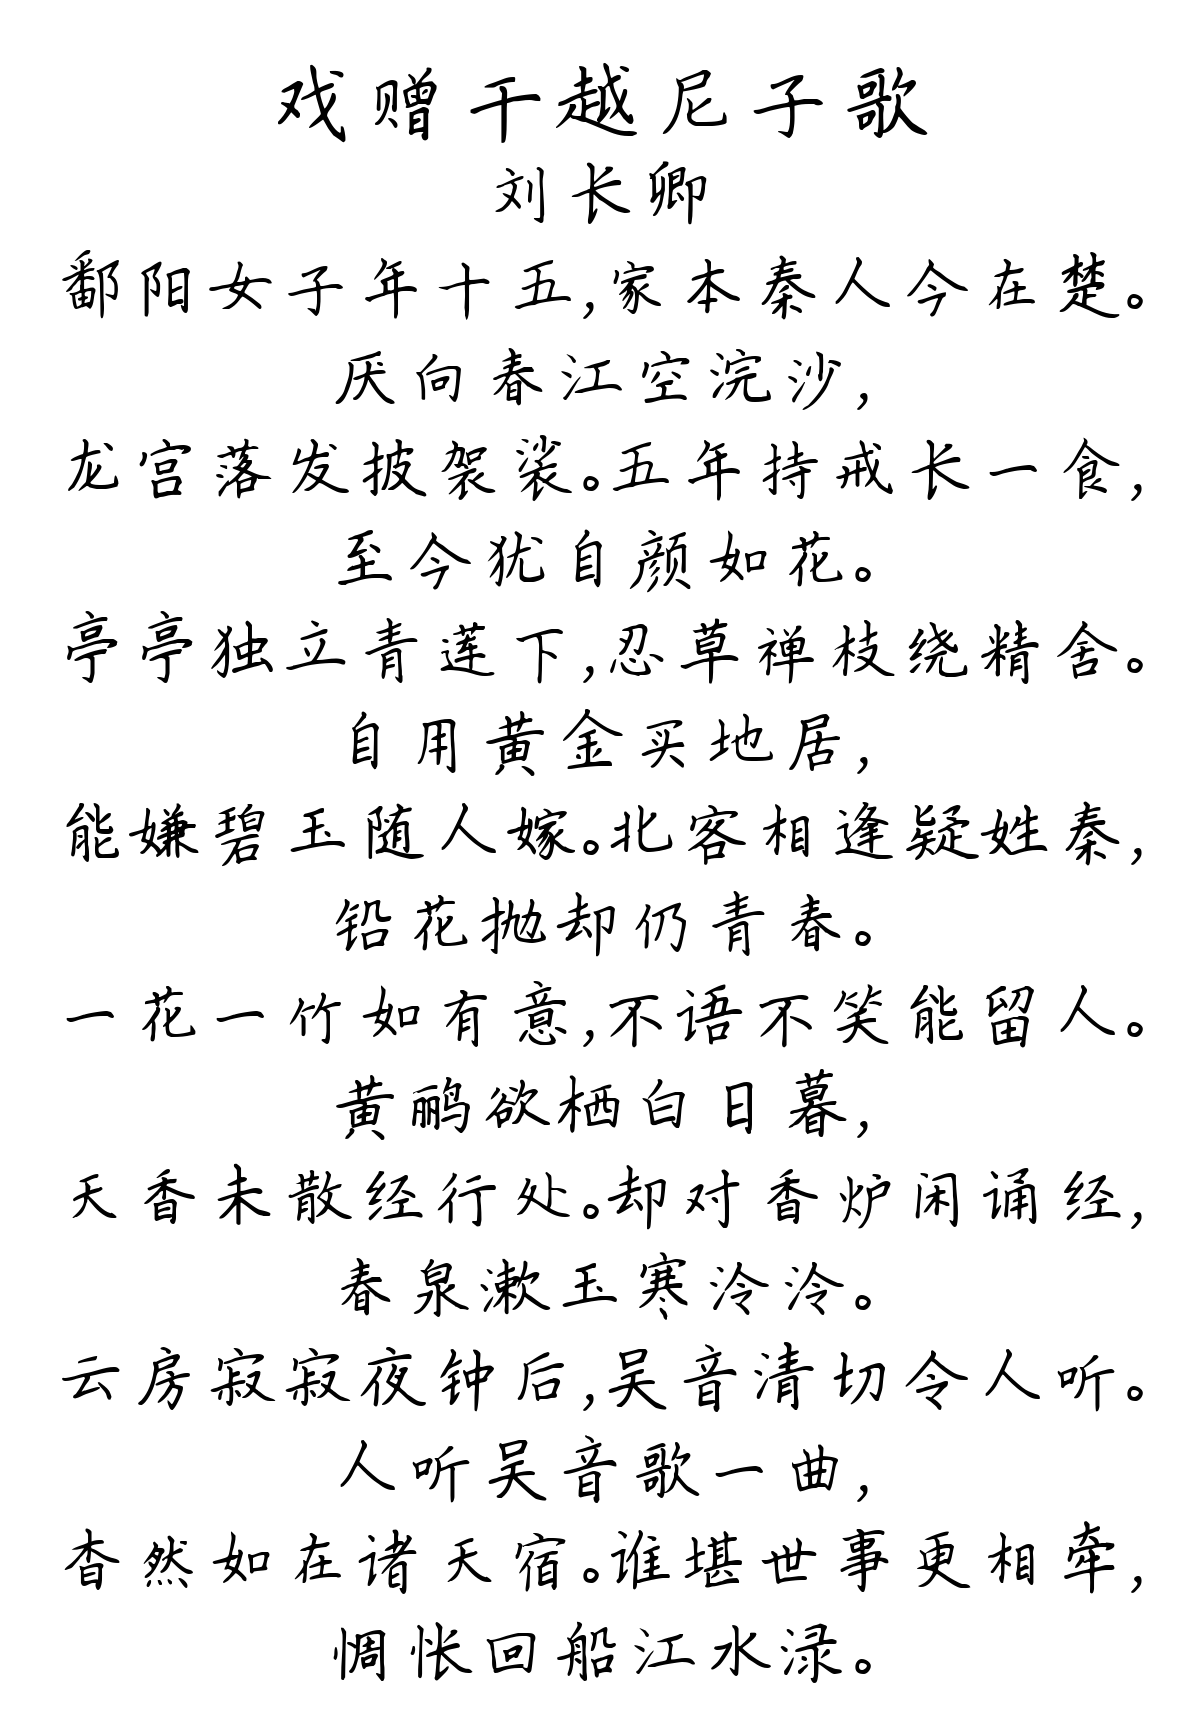 戏赠干越尼子歌
刘长卿
鄱阳女子年十五,家本秦人今在楚。
厌向春江空浣沙,
龙宫落发披袈裟。五年持戒长一食,
至今犹自颜如花。
亭亭独立青莲下,忍草禅枝绕精舍。
自用黄金买地居,
能嫌碧玉随人嫁。北客相逢疑姓秦,
铅花抛却仍青春。
一花一竹如有意,不语不笑能留人。
黄鹂欲栖白日暮,
天香未散经行处。却对香炉闲诵经,
春泉漱玉寒泠泠。
云房寂寂夜钟后,吴音清切令人听。
人听吴音歌一曲,
杳然如在诸天宿。谁堪世事更相牵,
惆怅回船江水渌。